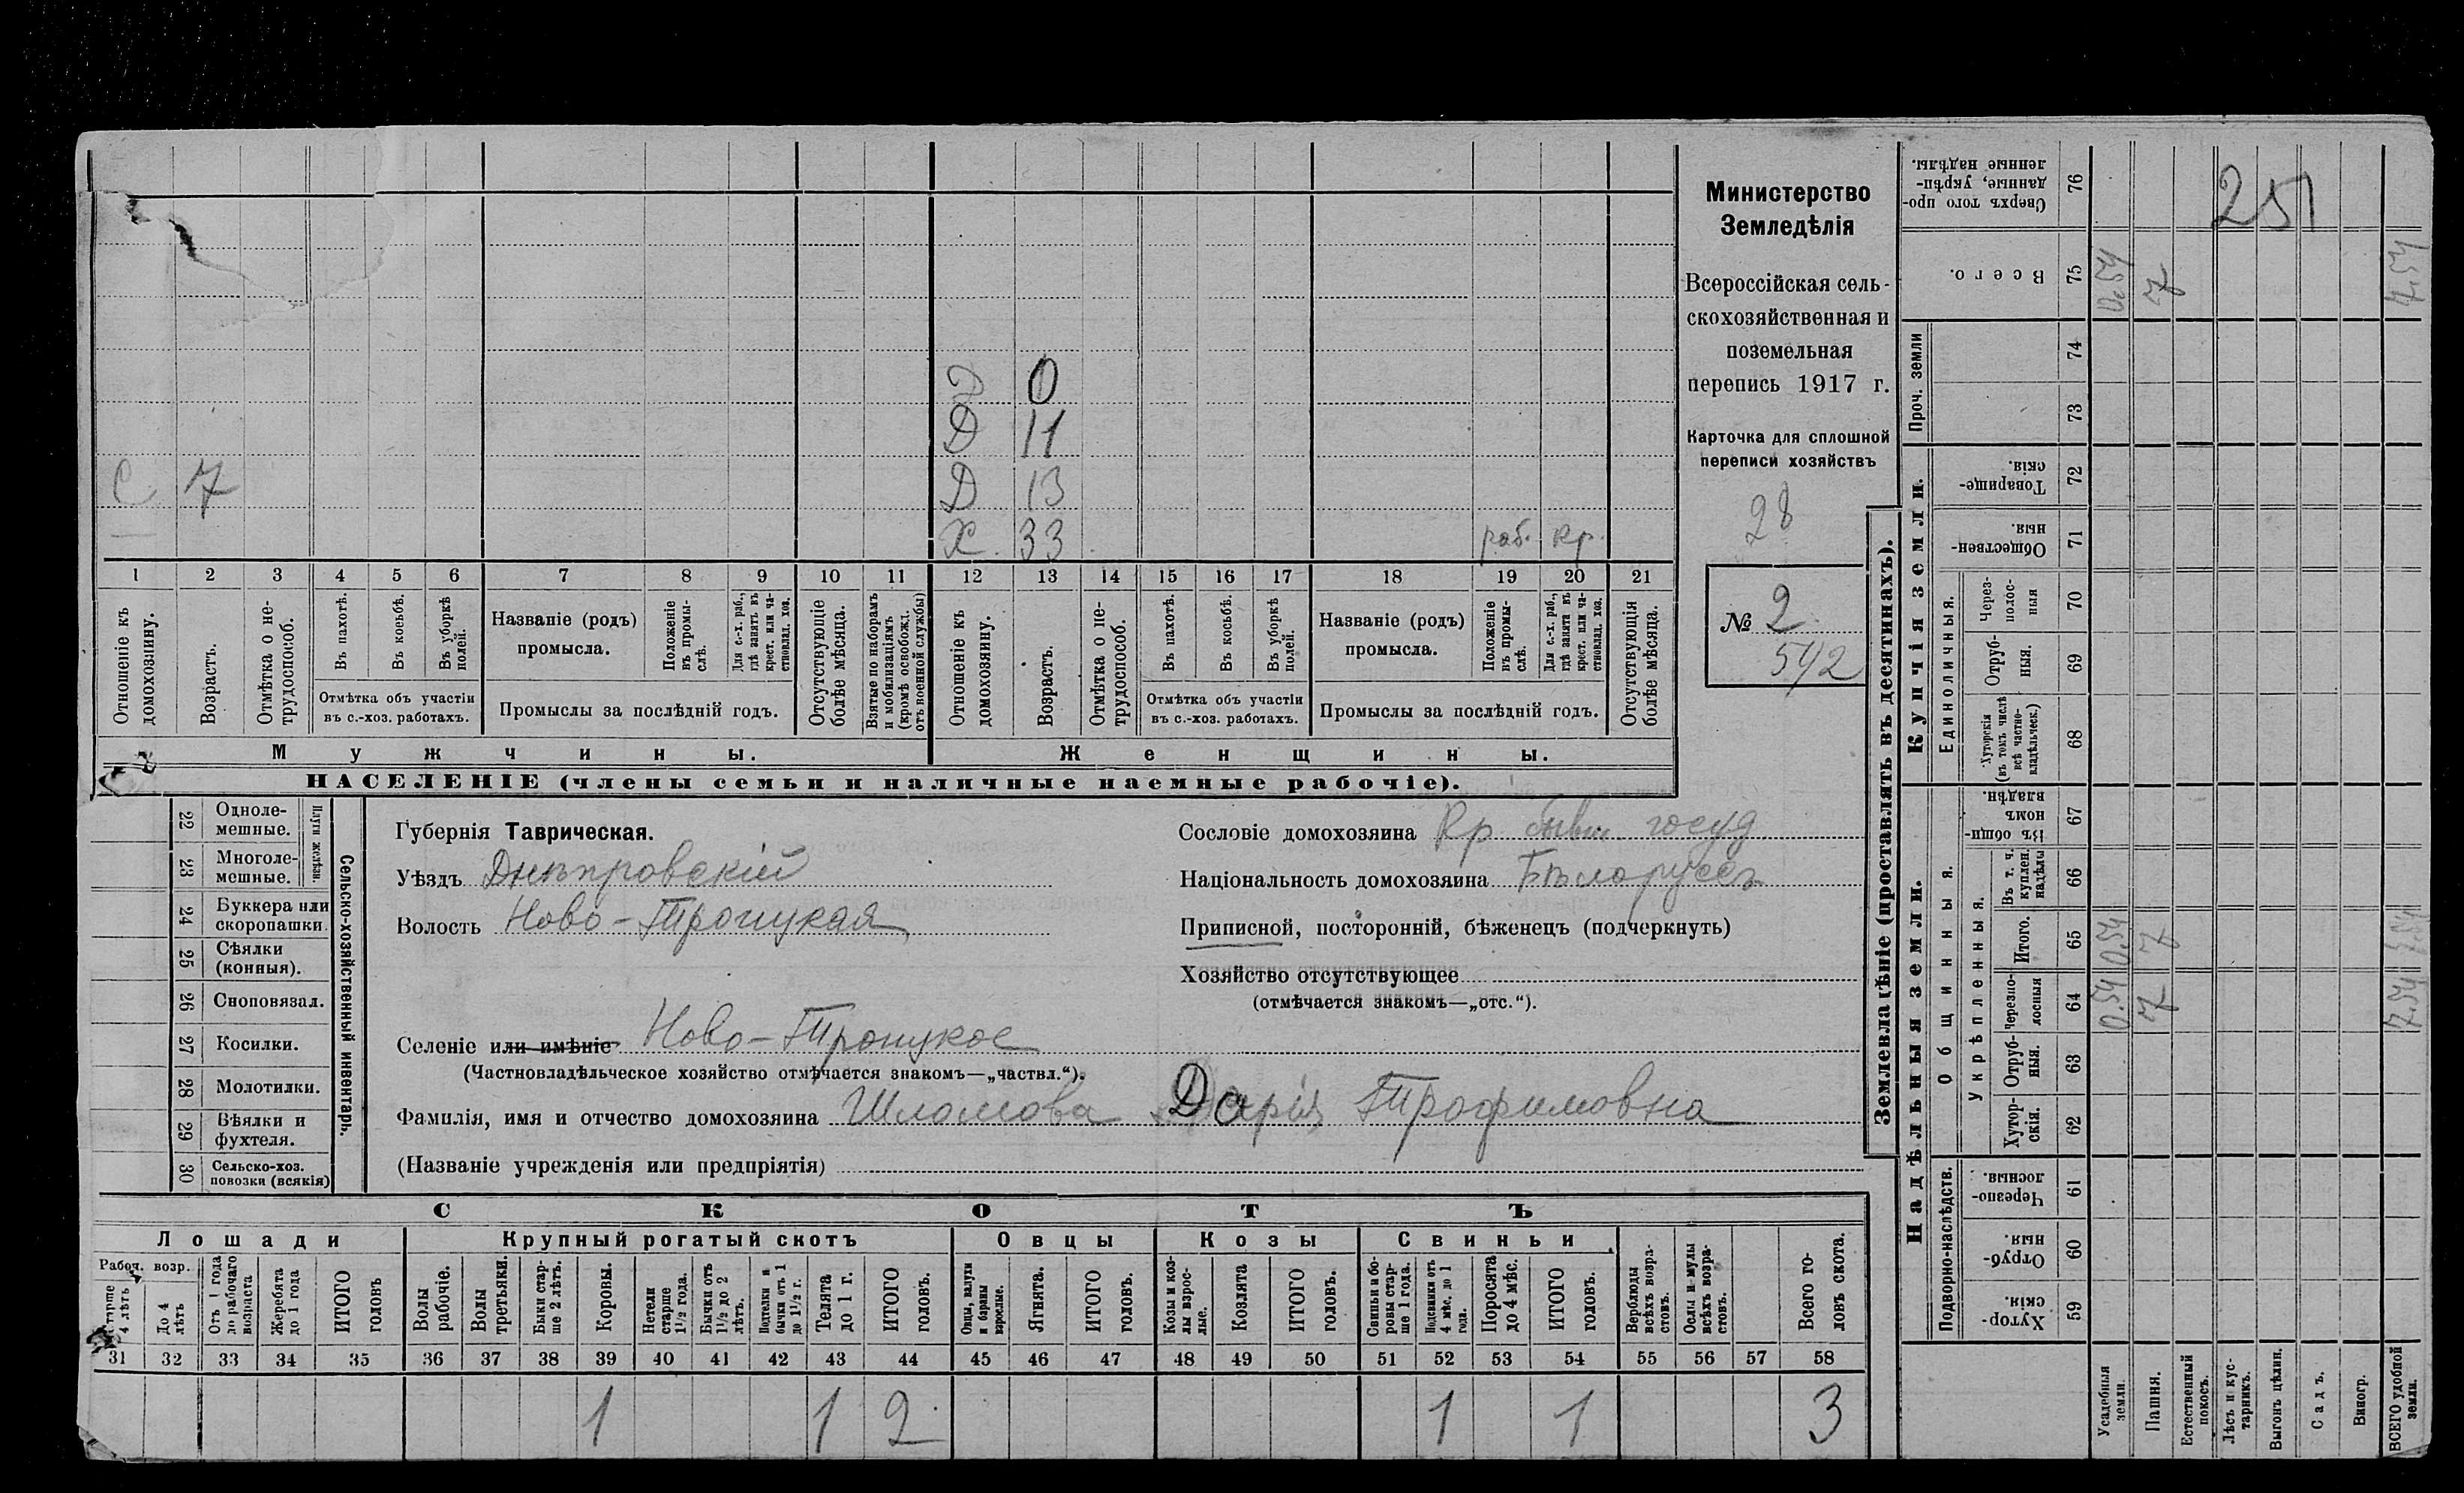 Д 0
Д 11
С 7 Д 13
— Х. 33 раб. кр.
1 2 3 4 5 6 7 8 9 10 11 12 13 14 15 16 17 18 19 20 21
Отношеніе къ домохозяину.
Возрастъ.
Отмѣтка о не-
трудоспособ.
Въ пахотѣ.
Въ косьбѣ.
Въ уборкѣ
полей.
Отмѣтка объ участіи
въ с.-хоз. работахъ.
Названіе (родъ)
промысла.
Положеніе
въ промы-
слѣ.
Для с.-х. раб.,
гдѣ занятъ въ
крест. или ча-
стновлад. хоз.
Промыслы за послѣдній годъ.
Отсутствующіе
болѣе мѣсяца.
Взятые по наборамъ
и мобилизаціямъ
(кромѣ освобожд.
отъ военной службы)
Отношеніе къ
домохозяину.
Возрастъ.
Отмѣтка о не-
трудоспособ.
Въ пахотѣ.
Въ косьбѣ.
Въ уборкѣ
полей.
Отмѣтка объ участіи
въ с.-хоз. работахъ.
Названіе (родъ)
промысла.
Положеніе
въ промы-
слѣ.
Для с.-х. раб.,
гдѣ заняти въ
крест. или ча-
стновлад. хоз.
Промыслы за послѣдній годъ.
Отсутствующія
болѣе мѣсяца.
Мужчины. Женщины.
НАСЕЛЕНІЕ (члены семьи и наличные наемные рабочіе).
Министерство
Земледѣлія
Всероссійская сель-
скохозяйственная и
поземельная
перепись 1917 г.
Карточка для сплошной
переписи хозяйствъ
28
№ 2
542
22 Одноле-
мешные.
23 Многоле-
мешные.
Плуги желѣзн.
24 Буккера или
скоропашки.
25 Сѣялки
(конныя).
26 Сноповязал.
27 Косилки.
28 Молотилки.
29 Вѣялки и
фухтеля.
30 Сельско-хоз.
повозки (всякія)
Сельско-хозяйственный инвентарь.
Губернія Таврическая.
Уѣздъ Днѣпровскій
Волость Ново-Троицкая
Селеніе или имѣніе Ново-Троицкое
(Частновладѣльческое хозяйство отмѣчается знакомъ—„частвл.“).
Фамилія, имя и отчество домохозяина Шломова Дарія Трофимовна
(Названіе учрежденія или предпріятія)
Сословіе домохозяина Кр бывш. госуд
Національность домохозяина Бѣлоруссъ
Приписной, посторонній, бѣженецъ (подчеркнуть)
Хозяйство отсутствующее
(отмѣчается знакомъ—„отс.“).
СКОТЪ
Лошади Крупный рогатый скотъ Овцы Козы Свиньи.
Рабоч. возр.
Старше
4 лѣтъ
До 4
лѣтъ
Отъ 1 года
до рабочаго
возраста
Жеребята
до 1 года
ИТОГО
головъ
Волы
рабочіе.
Волы
третьяки.
Быки стар-
ше 2 лѣтъ.
Коровы.
Нетели
старше
1½ года.
Бычки отъ
1½ до 2
лѣтъ.
Подтелки и
бычки отъ 1
до 1½ г.
Телята
до 1 г.
ИТОГО
головъ.
Овцы, валухи
и бараны
взрослые.
Ягнята.
ИТОГО
головъ.
Козы и коз-
лы взрос-
лые.
Козлята
ИТОГО
головъ.
Свиньи и бо-
ровы стар-
ше 1 года.
Подсвинки отъ
4 мѣс. до 1
года.
Поросята
до 4 мѣс.
ИТОГО
головъ.
Верблюды
всѣхъ возра-
стовъ.
Ослы и мулы
всѣхъ возра-
стовъ.
Всего го-
ловъ скота.
31 32 33 34 35 36 37 38 39 40 41 42 43 44 45 46 47 48 49 50 51 52 53 54 55 56 57 58
1 1 2 1 1 3
Землевладѣніе (проставлять въ десятинахъ).
Надѣльныя земли. Купчія земли. Проч. земли
Подворно-наслѣдств.
Общинныя.
Укрѣпленныя.
Единоличныя.
Сверхъ того про-
данные, укрѣп-
ленные надѣлы. 76
251
Всего. 75 0.54 7 7.54
74
73
Товарище-
скія. 72
Обществен-
ныя. 71
Через-
полос-
ныя 70
Отруб-
ныя. 69
Хуторскія
(въ томъ числѣ
всѣ частно-
владѣльческ.) 68
Въ общин-
номъ
владѣн. 67
Въ т. ч.
куплен.
надѣлы 66
Итого. 65 0.54 7 7.54
Черезпо-
лосныя 64 0.54 7 7.54
Отруб-
ныя. 63
Хутор-
скія. 62
Черезпо-
лосныя. 61
Отруб-
ныя. 60
Хутор-
скія. 59
Усадебныя
земли.
Пашня.
Естественный
покосъ.
Лѣсъ и кус-
тарникъ.
Выгонъ цѣлин.
Садъ.
Виногр.
ВСЕГО удобной
земли.